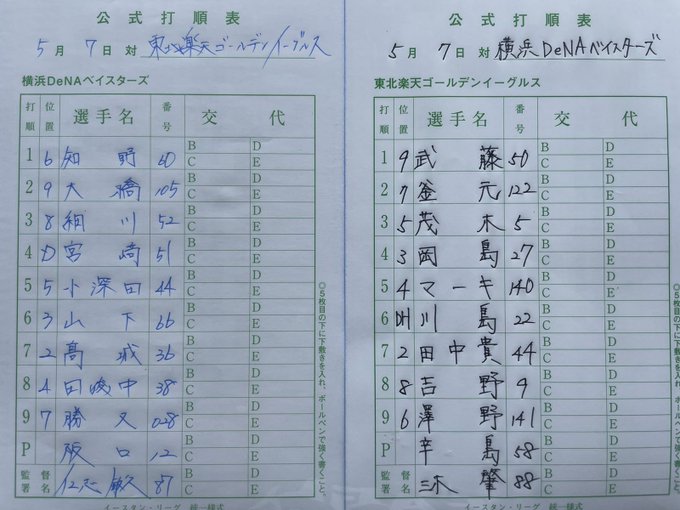 公式打順表
5月7日対 東北楽天ゴールデンイーグルス
横浜DeNAベイスターズ
打順 位置 選手名 番号 交代
1 6 知野 60 B D C E
2 9 大橋 105 B D C E
3 8 細川 52 B D C E
4 D 宮﨑 51 B D C E
5 5 小深田 44 B D C E
6 3 山下 66 B D C E
7 2 髙城 36 B D C E
8 4 田中 38 B D C E
9 7 勝又 028 B D C E
P 阪口 12
監督署名 仁志敏久 87
◎5枚目の下に下敷きを入れ、ボールペンで強く書くこと。
イースタン・リーグ 統一様式
公式打順表
5月7日対 横浜DeNAベイスターズ
東北楽天ゴールデンイーグルス
打順 位置 選手名 番号 交代
1 9 武藤 50 B D C E
2 7 釜元 122 B D C E
3 5 茂木 5 B D C E
4 3 岡島 27 B D C E
5 4 マーキ 140 B D C E
6 DH 川島 22 B D C E
7 2 田中貴 44 B D C E
8 8 吉野 9 B D C E
9 6 澤野 141 B D C E
P 辛島 58
監督署名 三木肇 88
◎5枚目の下に下敷きを入れ、ボールペンで強く書くこと。
イースタン・リーグ 統一様式